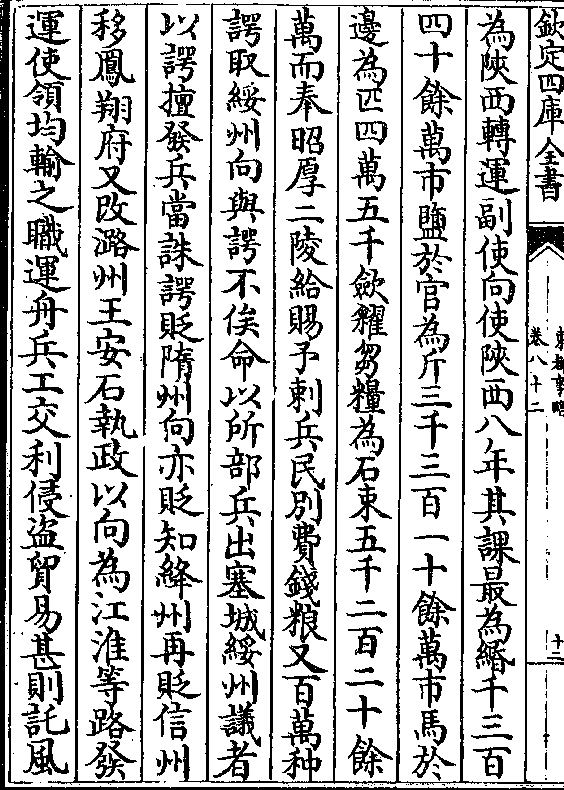 欽定四庫全書
東都事略
卷八十二
十二
為陜西轉運副使向使陜西八年其課最為緡千三百
四十餘萬市鹽於官為斤三千三百一十餘萬市馬於
邊為匹四萬五千歛糴芻糧為石束五千二百二十餘
萬而奉昭厚二陵給賜予刺兵民别費錢粮又百萬种
諤取綏州向與諤不俟命以所部兵出塞城綏州議者
以諤擅發兵當誅諤貶隋州向亦貶知絳州再貶信州
移鳳翔府又改潞州王安石執政以向為江淮等路發
運使領均輸之職運舟兵工交利侵盗貿易甚則託風